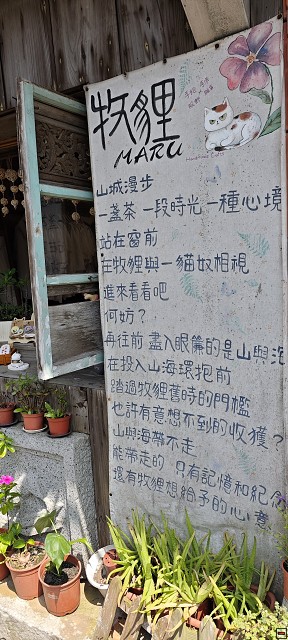 牧貍
MARU
山城漫步
一盞茶 一段時光 一種心境
站在窗前
在牧貍與一貓奴相視
進來看看吧
何妨?
再往前 盡入眼簾的是山與海
在投入山海環抱前
踏過牧貍舊時的門檻
也許有意想不到的收獲?
山與海帶不走
能帶走的 只有記憶和紀念
還有牧貍想給予的心意